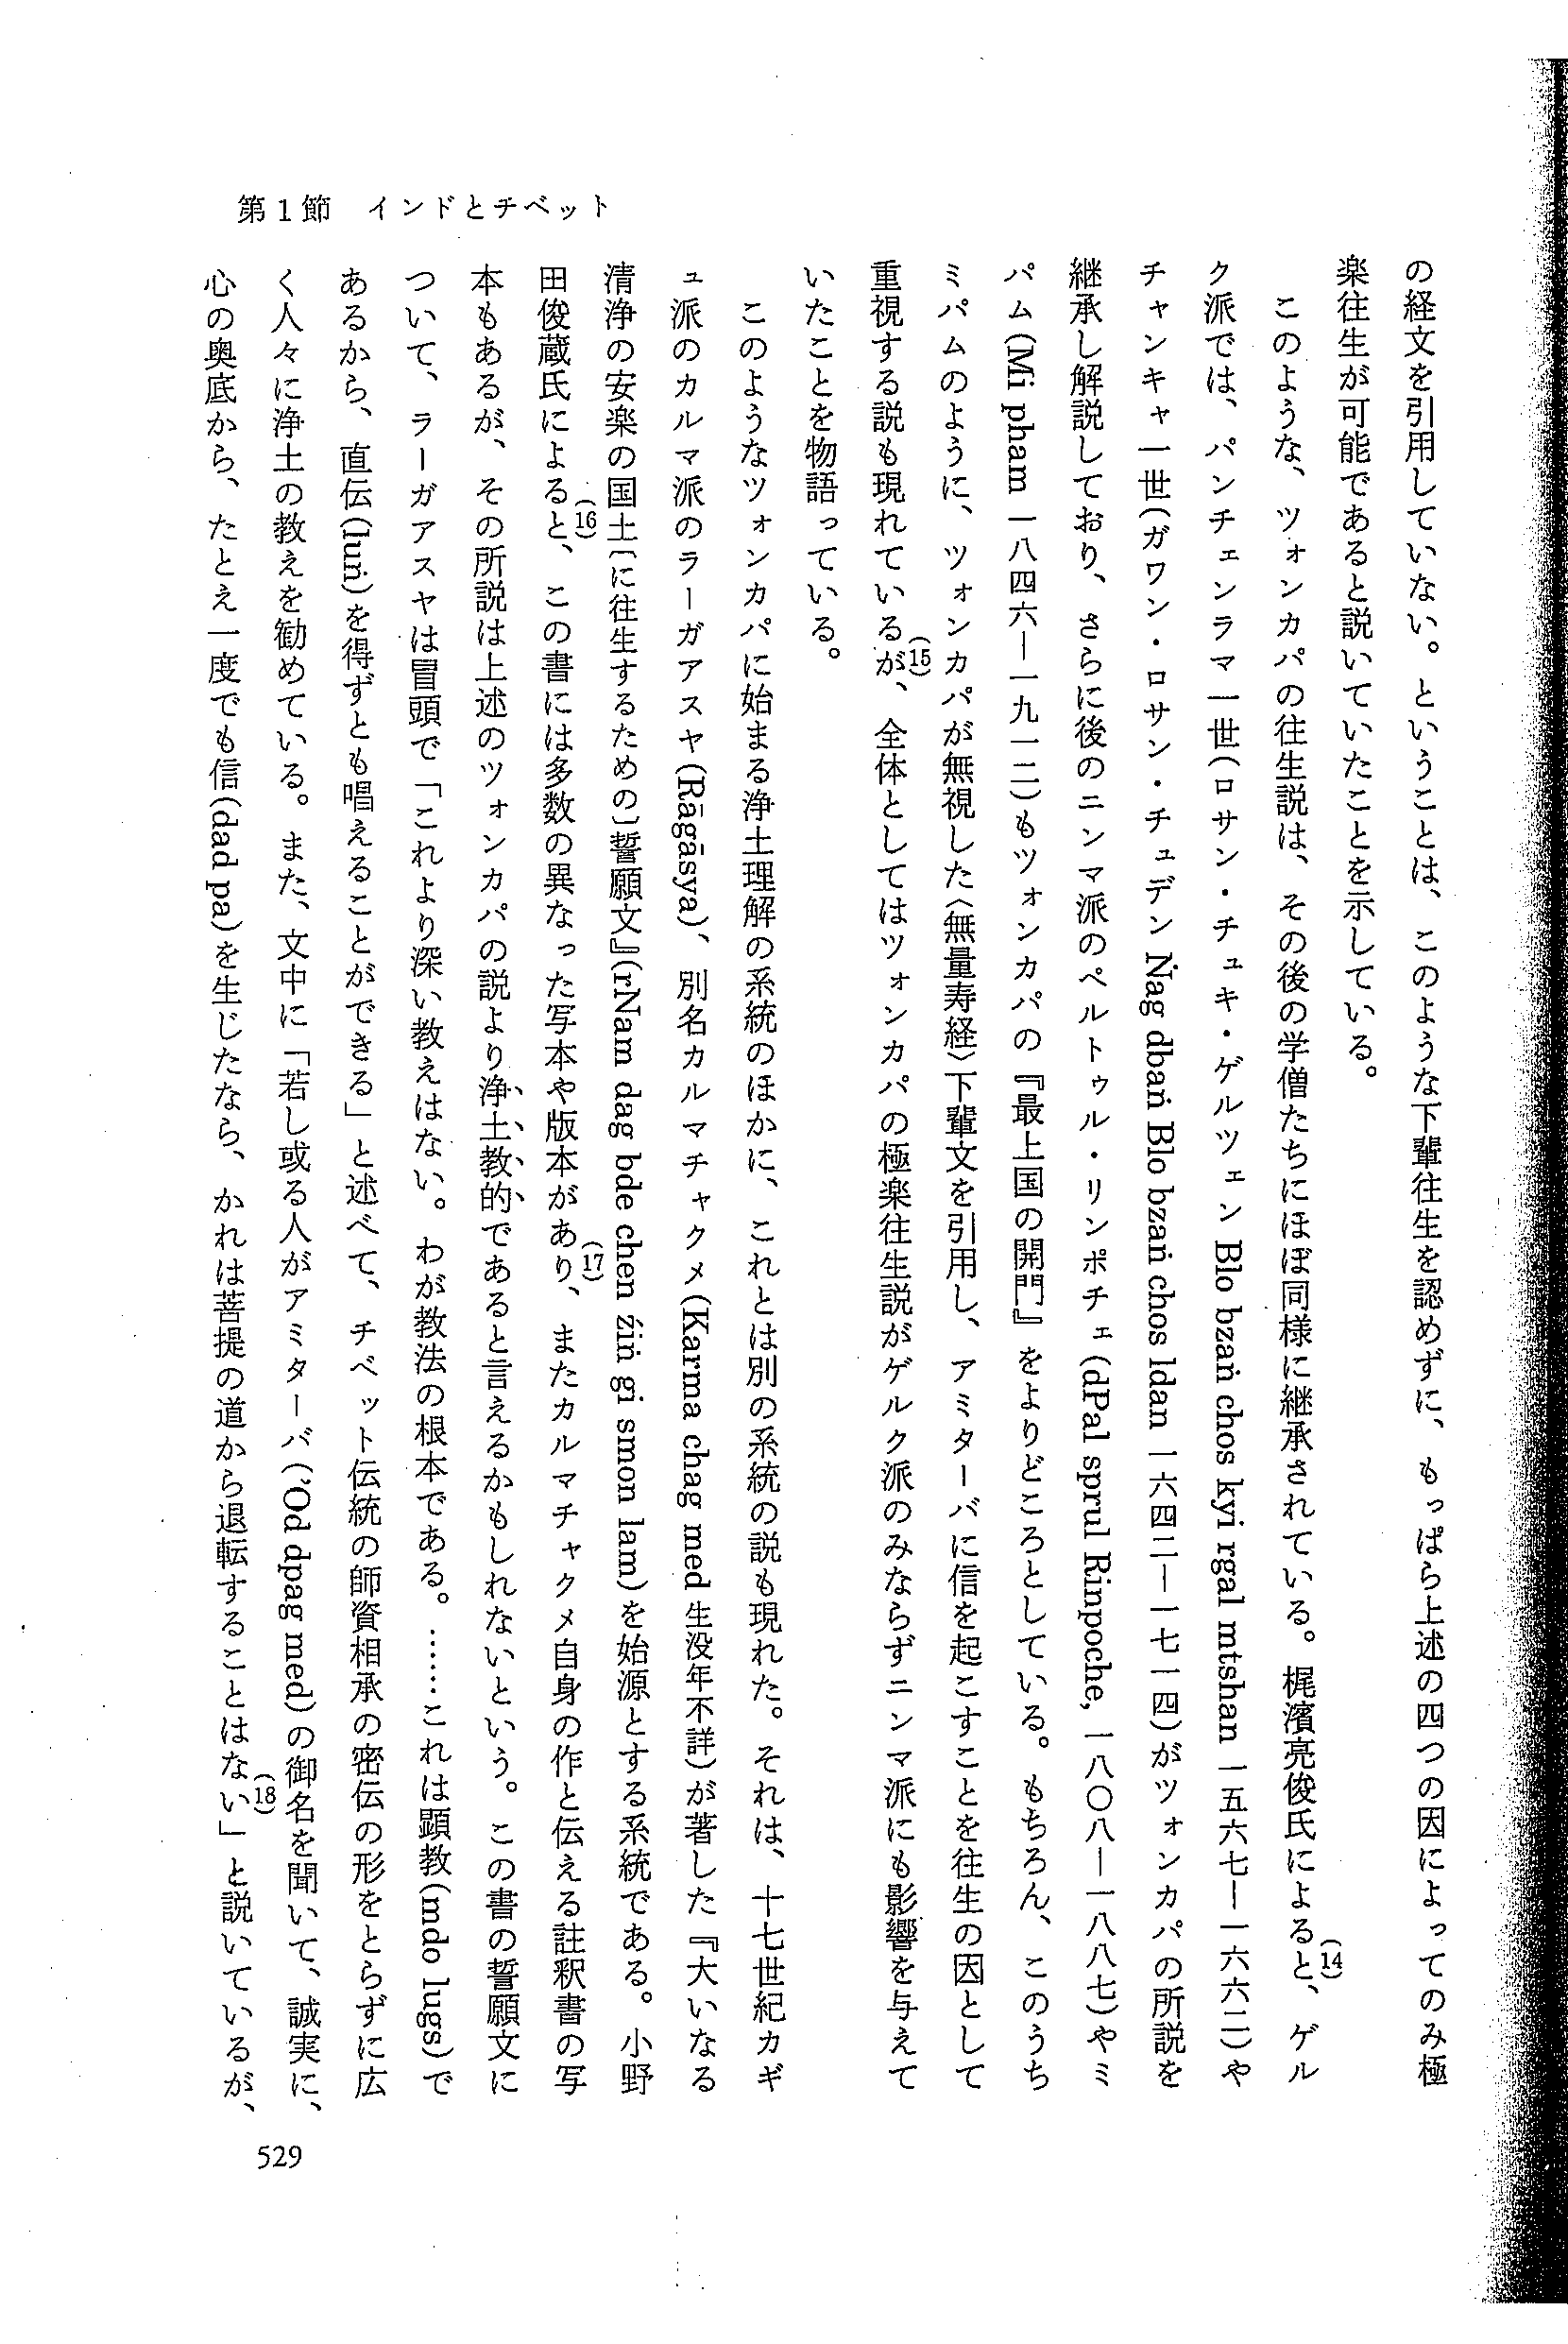 第1節　インドとチベット
の経文を引用していない。ということは、このような下輩往生を認めずに、もっぱら上述の四つの因によってのみ極
楽往生が可能であると説いていたことを示している。
　このような、ツォンカパの往生説は、その後の学僧たちにほぼ同様に継承されている。梶濱亮俊氏によると(14)、ゲル
ク派では、パンチェンラマ一世(ロサン・チュキ・ゲルツェン Blo bzaṅ chos kyi rgal mtshan 一五六七―一六六二)や
チャンキャ一世(ガワン・ロサン・チュデン Ṅag dbaṅ Blo bzaṅ chos ldan 一六四二―一七一四)がツォンカパの所説を
継承し解説しており、さらに後のニンマ派のペルトゥル・リンポチェ(dPal sprul Rinpoche, 一八〇八―一八八七)やミ
パム(Mi pham 一八四六―一九一二)もツォンカパの『最上国の開門』をよりどころとしている。もちろん、このうち
ミパムのように、ツォンカパが無視した〈無量寿経〉下輩文を引用し、アミターバに信を起こすことを往生の因として
重視する説も現れているが(15)、全体としてはツォンカパの極楽往生説がゲルク派のみならずニンマ派にも影響を与えて
いたことを物語っている。
　このようなツォンカパに始まる浄土理解の系統のほかに、これとは別の系統の説も現れた。それは、十七世紀カギ
ュ派のカルマ派のラーガアスヤ(Rāgāsya)、別名カルマチャクメ(Karma chag med 生没年不詳)が著した『大いなる
清浄の安楽の国土〔に往生するための〕誓願文』(rNam dag bde chen źiṅ gi smon lam)を始源とする系統である。小野
田俊蔵氏によると(16)、この書には多数の異なった写本や版本があり(17)、またカルマチャクメ自身の作と伝える註釈書の写
本もあるが、その所説は上述のツォンカパの説より浄土教的であると言えるかもしれないという。この書の誓願文に
ついて、ラーガアスヤは冒頭で「これより深い教えはない。わが教法の根本である。……これは顕教(mdo lugs)で
あるから、直伝(luṅ)を得ずとも唱えることができる」と述べて、チベット伝統の師資相承の密伝の形をとらずに広
く人々に浄土の教えを勧めている。また、文中に「若し或る人がアミターバ('Od dpag med)の御名を聞いて、誠実に、
心の奥底から、たとえ一度でも信(dad pa)を生じたなら、かれは菩提の道から退転することはない(18)」と説いているが、
529